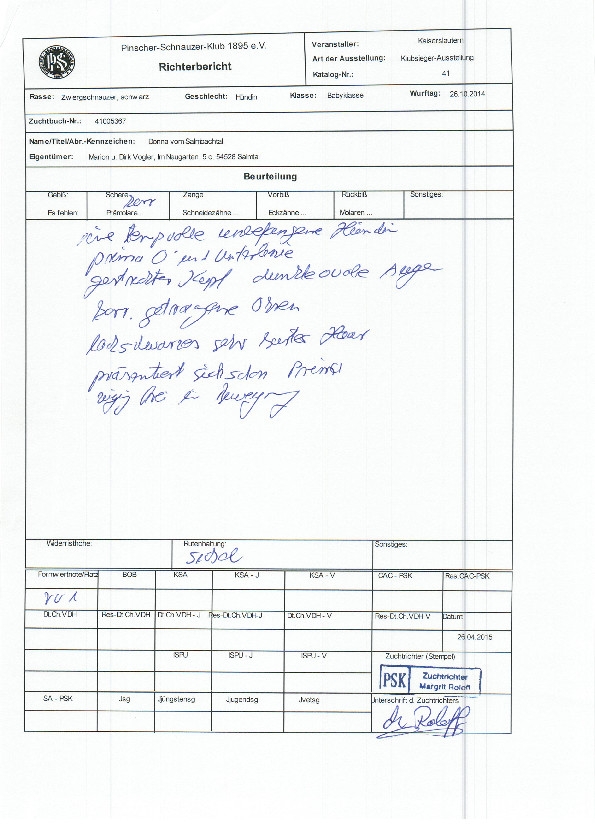 Pinscher-Schnauzer-Klub 1895 e.V.
Richterbericht
Veranstalter: Kaiserslautern
Art der Ausstellung: Klubsieger-Ausstellung
Katalog-Nr.: 41
Rasse: Zwergschnauzer, schwarz Geschlecht: Hündin Klasse: Babyklasse Wurftag: 26.10.2014
Zuchtbuch-Nr.: 41005367
Name/Titel/Abr.-Kennzeichen: Donna vom Salmbachtal
Eigentümer: Marion u. Dirk Vogler, Im Naugarten 5 c, 54528 Salmta
Beurteilung
Gebiß: Schere Zange Vorbiß Rückbiß Sonstiges:
korr
Es fehlen: Prämolare Schneidezähne ... Eckzähne ... Molaren ...
eine temp.volle unbefangene Hündin
prima O und Unterlinie
gestreckter Kopf dunkle ovale Auge
korr. getragene Ohren
lackschwarzes sehr hartes Haar
präsentiert sich schon Prima
zügig frei in Bewegung
Widerristhöhe: Rutenhaltung: Sonstiges:
Sichel
Formwertnote/Platz BOB KSA KSA - J KSA - V CAC - PSK Res.CAC-PSK
vv 1
Dt.Ch.VDH Res-Dt.Ch.VDH Dt.Ch.VDH - J Res-Dt.Ch.VDH-J Dt.Ch.VDH - V Res-Dt.Ch.VDH-V Datum:
26.04.2015
ISPU ISPU - J ISPU - V Zuchtrichter (Stempel)
PSK Zuchtrichter
Margrit Roloff
SA - PSK Jsg Jüngstensg Jugendsg Jvetsg Unterschrift d. Zuchtrichters
Roloff